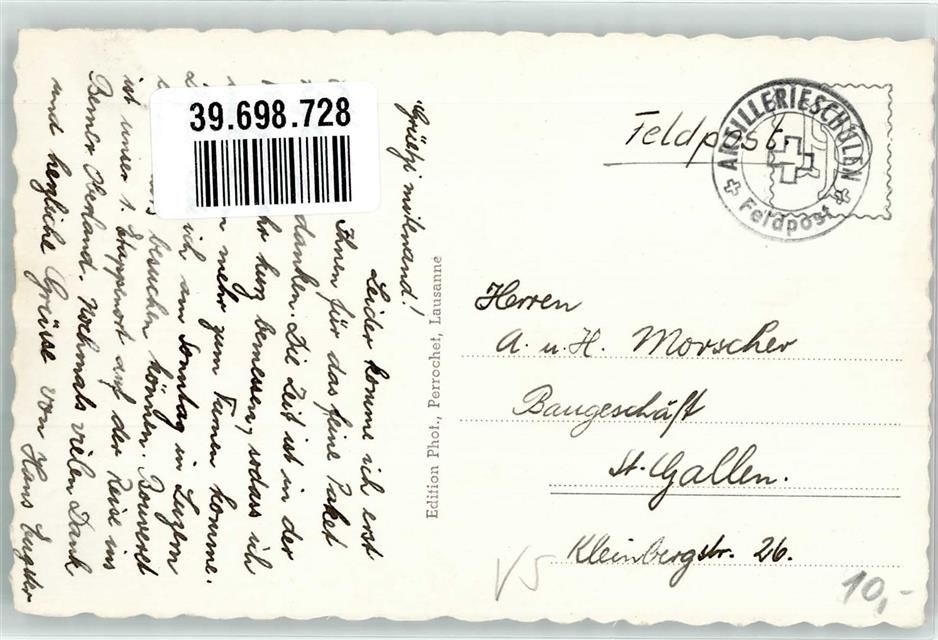 39.698.728
"Grüetzi mitenand!
Leider komme ich erst
Ihnen für das feine Paket
danken. Die Zeit ist in der
kurz bemessen, sodass ich
mehr zum Turnen komme.
ich am Sonntag in Luzern
besuchen können. Bouveret
ist unser 1. Etappenort auf der Reise ins
Berner Oberland. Nochmals vielen Dank
und herzliche Grüsse von Hans Eugster
Edition Phot., Perrochet, Lausanne
Feldpost
ARTILLERIESCHULEN
Feldpost
Herren
A. u. H. Morscher
Baugeschäft
St. Gallen.
Kleinbergstr. 26.
VS
10,-